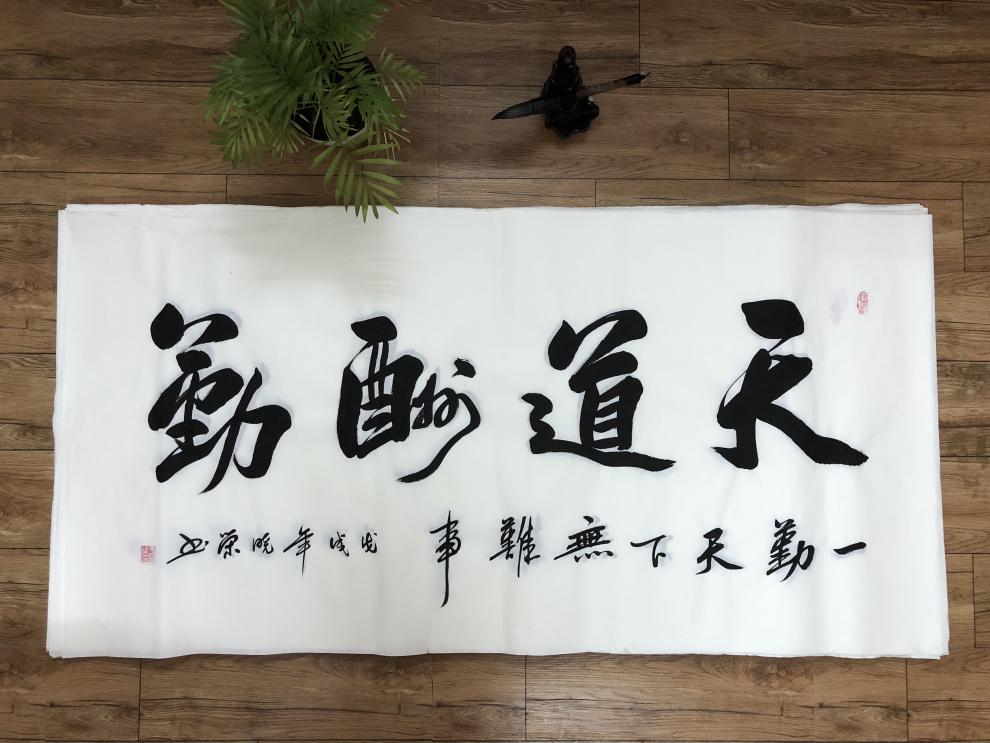 天道酬勤
一勤天下無難事
戊戌年晚荣书